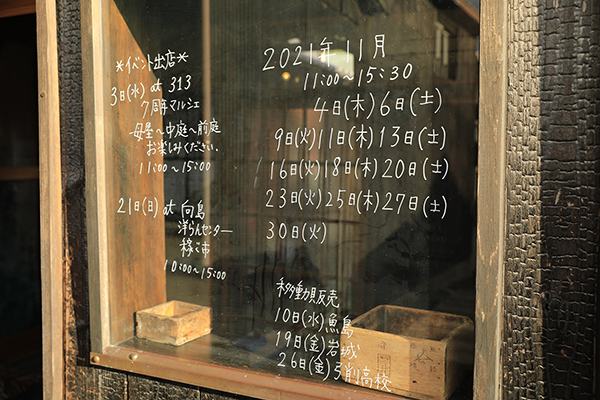 *イベント出店*
3日(水) at 313
7周年マルシェ
母屋〜中庭〜前庭
お楽しみください.
11:00〜15:00
21日(日) at 向島
洋らんセンター
稼ぐ市
10:00〜15:00
2021年 11月
11:00〜15:30
4日(木)6日(土)
9日(火)11日(木)13日(土)
16日(火)18日(木)20日(土)
23日(火)25日(木)27日(土)
30日(火)
移動販売
10日(水)魚島
19日(金)岩城
26日(金)弓削高校